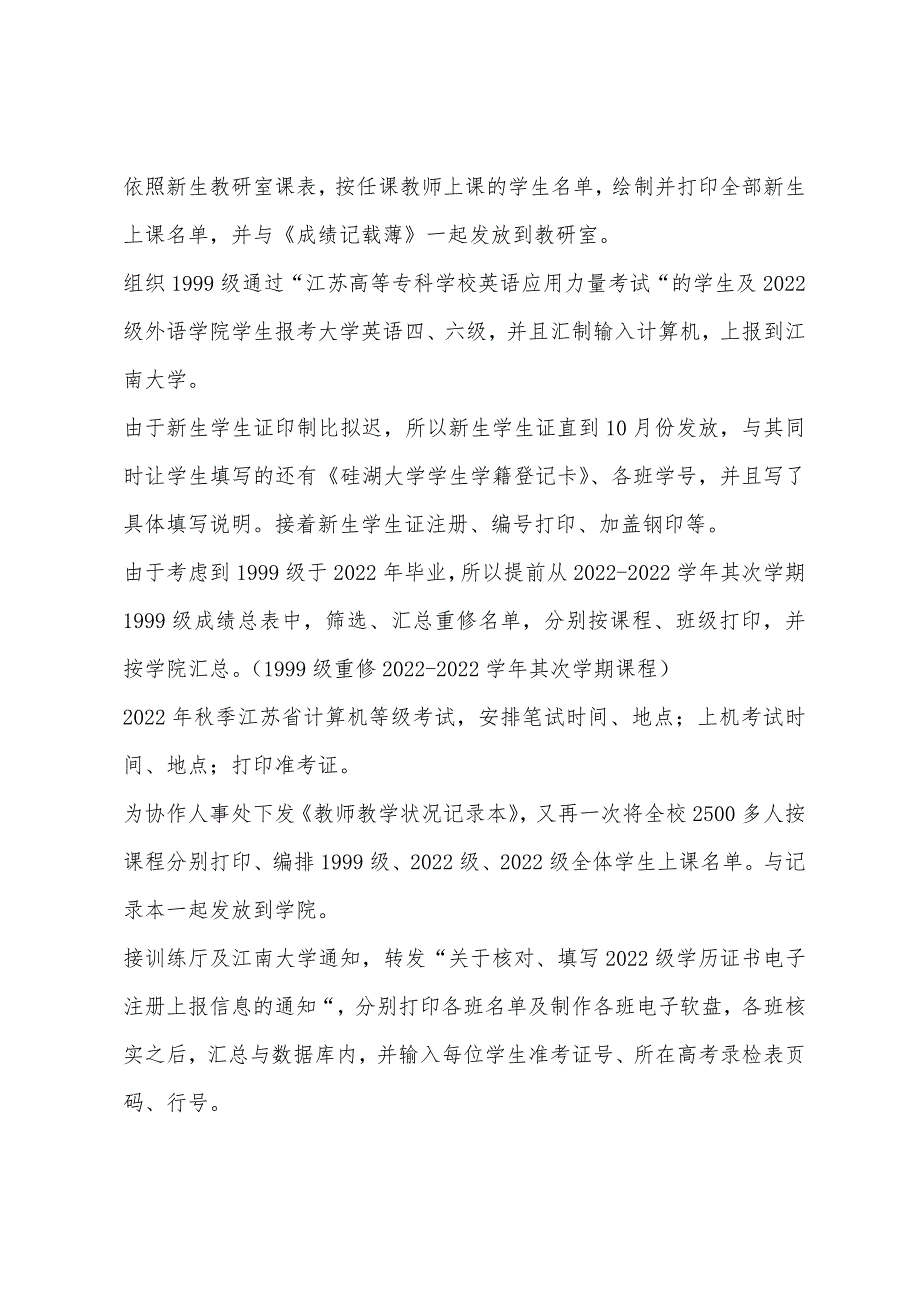 依照新生教研室课表，按任课教师上课的学生名单，绘制并打印全部新生
上课名单，并与《成绩记载薄》一起发放到教研室。
组织 1999 级通过“江苏高等专科学校英语应用力量考试“的学生及 2022
级外语学院学生报考大学英语四、六级，并且汇制输入计算机，上报到江
南大学。
由于新生学生证印制比拟迟，所以新生学生证直到 10 月份发放，与其同
时让学生填写的还有《硅湖大学学生学籍登记卡》、各班学号，并且写了
具体填写说明。接着新生学生证注册、编号打印、加盖钢印等。
由于考虑到 1999 级于 2022 年毕业，所以提前从 2022-2022 学年其次学期
1999 级成绩总表中，筛选、汇总重修名单，分别按课程、班级打印，并
按学院汇总。（1999 级重修 2022-2022 学年其次学期课程）
2022 年秋季江苏省计算机等级考试，安排笔试时间、地点；上机考试时
间、地点；打印准考证。
为协作人事处下发《教师教学状况记录本》，又再一次将全校 2500 多人按
课程分别打印、编排 1999 级、2022 级、2022 级全体学生上课名单。与记
录本一起发放到学院。
接训练厅及江南大学通知，转发“关于核对、填写 2022 级学历证书电子
注册上报信息的通知“，分别打印各班名单及制作各班电子软盘，各班核
实之后，汇总与数据库内，并输入每位学生准考证号、所在高考录检表页
码、行号。